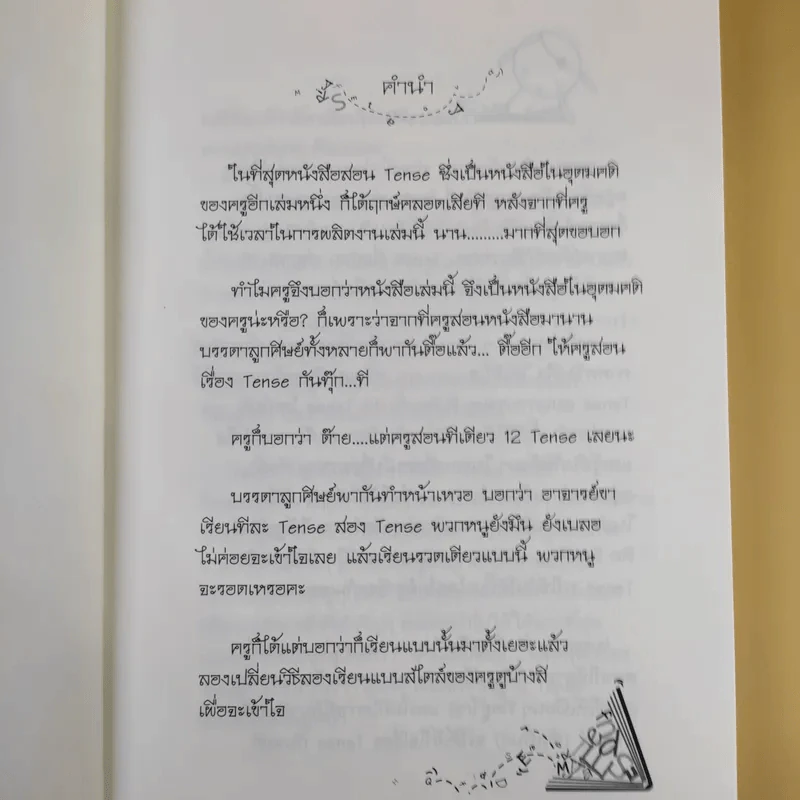 คำนำ
ในที่สุดหนังสือสอน Tense ซึ่งเป็นหนังสือในอุดมคติ
ของครูอีกเล่มหนึ่ง ก็ได้ฤกษ์คลอดเสียที หลังจากที่ครู
ได้ใช้เวลาในการผลิตงานเล่มนี้ นาน.........มากที่สุดขอบอก
ทำไมครูจึงบอกว่าหนังสือเล่มนี้ จึงเป็นหนังสือในอุดมคติ
ของครูน่ะหรือ? ก็เพราะว่าจากที่ครูสอนหนังสือมานาน
บรรดาลูกศิษย์ทั้งหลายก็พากันตื๊อแล้ว... ตื๊ออีก ให้ครูสอน
เรื่อง Tense กันทุ๊ก...ที
ครูก็บอกว่า ต๊าย....แต่ครูสอนทีเดียว 12 Tense เลยนะ
บรรดาลูกศิษย์พากันทำหน้าเหวอ บอกว่า อาจารย์ขา
เรียนทีละ Tense สอง Tense พวกหนูยังมึน ยังเบลอ
ไม่ค่อยจะเข้าใจเลย แล้วเรียนรวดเดียวแบบนี้ พวกหนู
จะรอดเหรอคะ
ครูก็ได้แต่บอกว่าก็เรียนแบบนั้นมาตั้งเยอะแล้ว
ลองเปลี่ยนวิธีลองเรียนแบบสไตล์ของครูดูบ้างสิ
เผื่อจะเข้าใจ